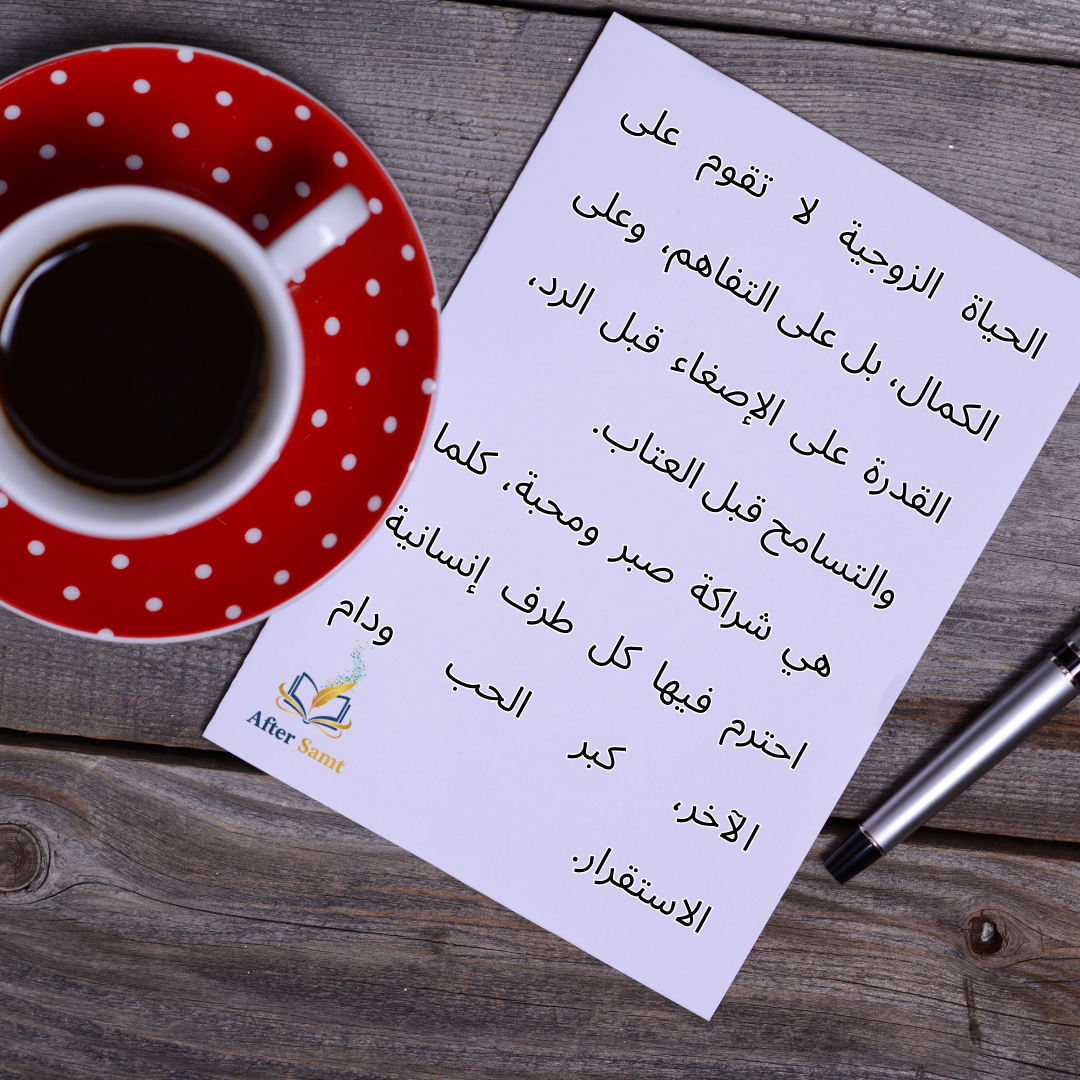 الحياة الزوجية لا تقوم على
الكمال، بل على التفاهم، وعلى
القدرة على الإصغاء قبل الرد،
والتسامح قبل العتاب.
هي شراكة صبر ومحبة، كلما
احترم فيها كل طرف إنسانية
الآخر، كبر الحب ودام
الاستقرار.
After Samt